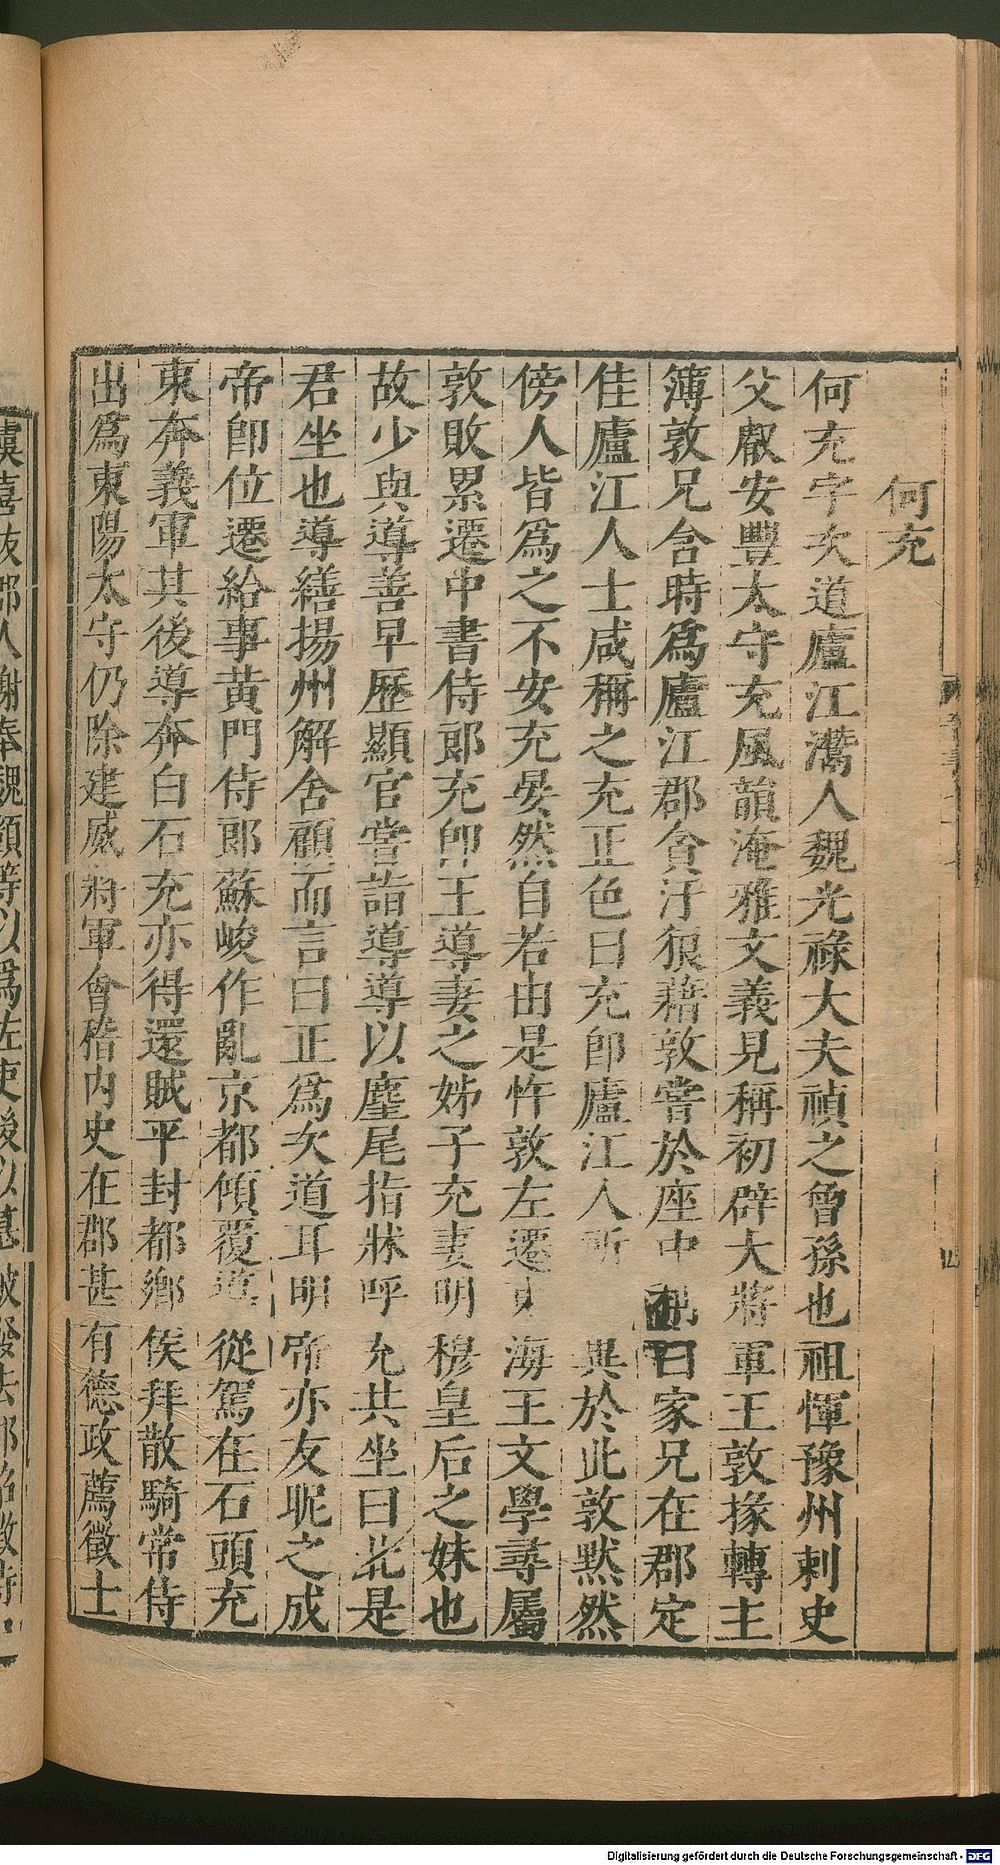 何充
何充字次道廬江灊人魏光祿大夫禎之曾孫也祖惲豫州刺史
父叡安豐太守充風韻淹雅文義見稱初辟大將軍王敦掾轉主
簿敦兄含時爲廬江郡貪汙狼藉敦嘗於座中 曰家兄在郡定
佳廬江人士咸稱之充正色曰充卽廬江人所 異於此敦默然
傍人皆爲之不安充晏然自若由是忤敦左遷東海王文學尋屬
敦敗累遷中書侍郎充卽王導妻之姊子充妻明穆皇后之妹也
故少與導善早歷顯官嘗詣導導以麈尾指牀呼充共坐曰此是
君坐也導繕揚州解舍顧而言曰正爲次道耳明帝亦友昵之成
帝卽位遷給事黃門侍郎蘇峻作亂京都傾覆導從駕在石頭充
東奔義軍其後導奔白石充亦得還賊平封都鄉侯拜散騎常侍
出爲東陽太守仍除建威將軍會稽內史在郡甚有德政薦徵士
虞喜拔郡人謝奉魏顗等以爲佐吏後以墓被發去郡詔徵侍
Digitalisierung gefördert durch die Deutsche Forschungsgemeinschaft - DFG